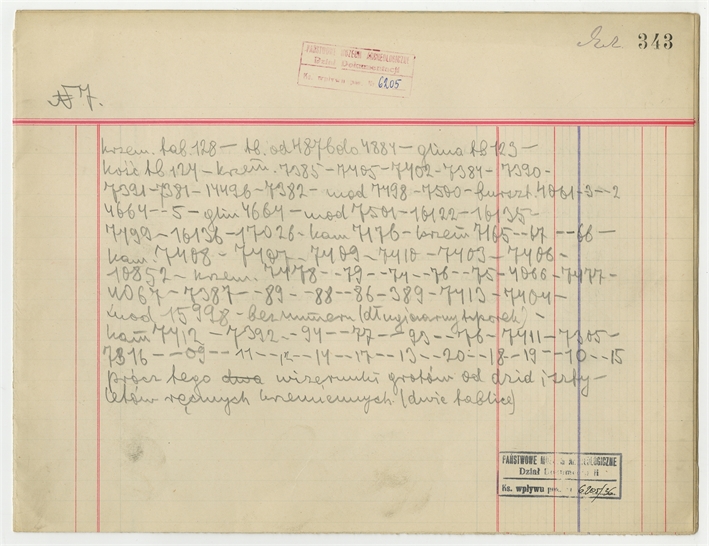 343
PAŃSTWOWE MUZEUM ARCHEOLOGICZNE
Dział Dokumentacji
Ks. wpływu poz. 6205
№ 7.
krzem. tab. 128 — tb. od 4876 do 4884 — glina tb 123 —
kość tb 124 — krzem. 7385 — 7405 — 7402 — 7384 — 7390 —
7391 — 7381 — 14496 — 7382 — mod 7498 — 7500 — burszt 4061 — 3 — — 2
4664 — — 5 — glin 4664 — mod 7501 — 16122 — 16135 —
7499 — 16136 — 17026 — kam 7176 — krzem 7165 — — 67 — — 66 —
kam 7408 — 7407 — 7409 — 7410 — 7403 — 7406 —
10852 — krzem. 7478 — — 79 — — 74 — — 76 — — 75 — 4066 — 7477 —
4067 — 7387 — — 89 — — 88 — — 86 — 389 — 7413 — 7404 —
mod 15998 — bez numeru (długi toporek) —
kam 7412 — 7392 — — 94 — — 77 — — 93 — — 76 — 7411 — 7305 —
7316 — — 09 — — 11 — — 12 — — 14 — 17 — — 13 — — 20 — 18 — 19 — — 10 — — 15
prócz tego dwa wizerunki grotów od dzid i szty—
letów ręcznych krzemiennych (dwie tablice)
PAŃSTWOWE MUZEUM ARCHEOLOGICZNE
Dział Dokumentacji
Ks. wpływu poz. 6205/36